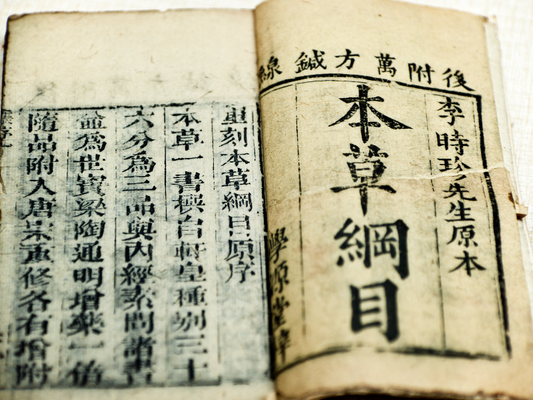 後附萬方鍼線
李時珍先生原本
本草綱目
重刻本草綱目原序
本草一書撰自軒皇種別三十
六分為三品與內經素問諸書
並為世寶梁陶通明增藥一倍
隨品附入唐宋重修各有增附